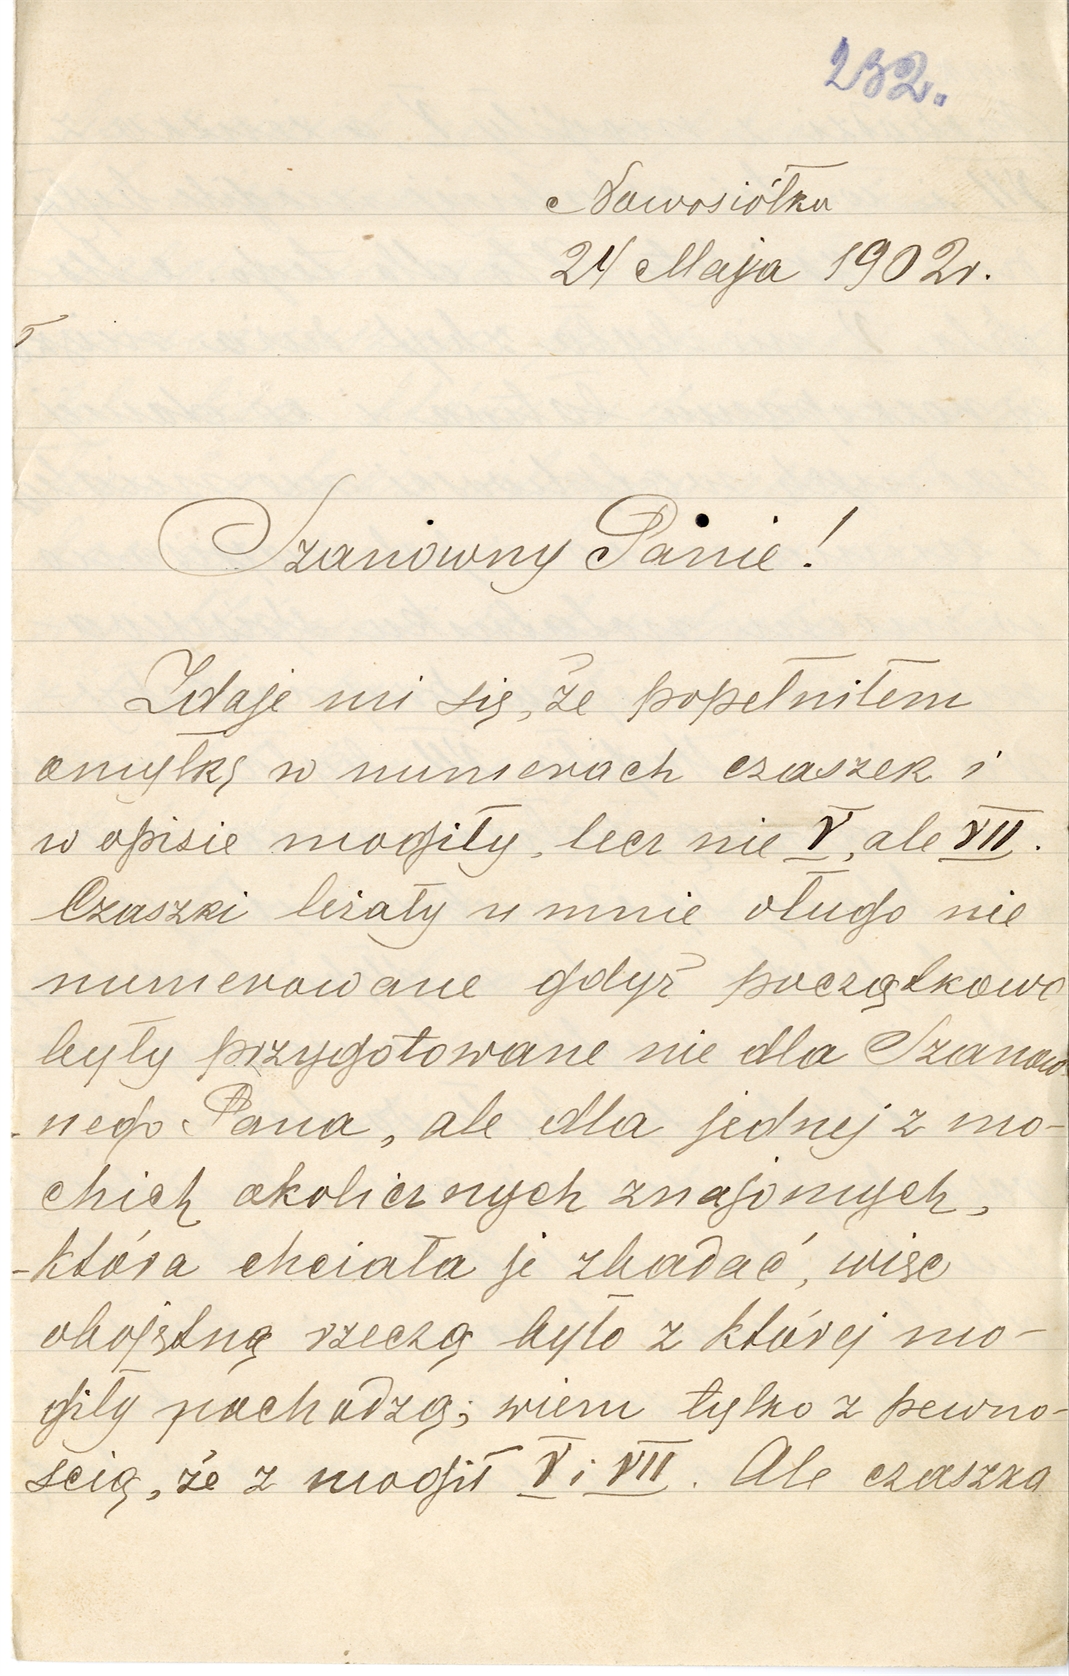 232.
Nowosiółka
24 Maja 1902 r.
Szanowny Panie!
Zdaje mi się, że popełniłem
omyłkę w numerach czaszek i
w opisie mogiły, lecz nie V, ale VII.
Czaszki leżały u mnie długo nie
numerowane gdyż początkowo
były przygotowane nie dla Szanow
nego Pana, ale dla jednej z mo-
chich okolicznych znajomych,
która chciała je zbadać, więc
obojętną rzeczą było z której mo-
giły pochodzą; wiem tylko z pewno-
ścią, że z mogił V i VII. Ale czaszka